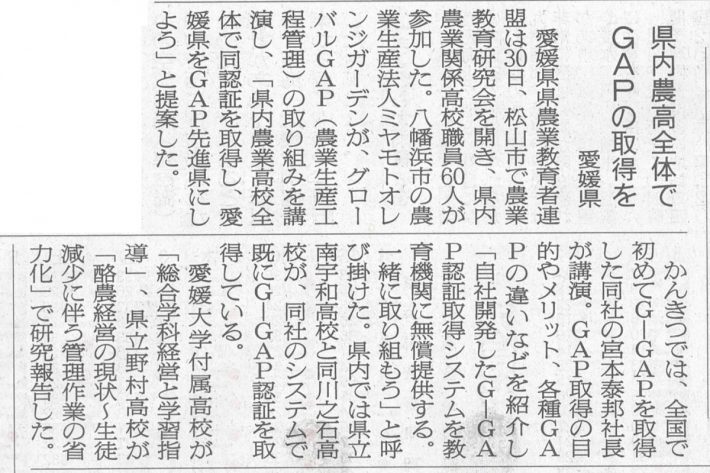 県内農高全体で
GAPの取得を
愛媛県
愛媛県県農業教育者連
盟は30日、松山市で農業
教育研究会を開き、県内
農業関係高校職員60人が
参加した。八幡浜市の農
業生産法人ミヤモトオレ
ンジガーデンが、グロー
バルGAP（農業生産工
程管理）の取り組みを講
演し、「県内農業高校全
体で同認証を取得し、愛
媛県をGAP先進県にし
よう」と提案した。
かんきつでは、全国で
初めてG−GAPを取得
した同社の宮本泰邦社長
が講演。GAP取得の目
的やメリット、各種GA
Pの違いなどを紹介し
「自社開発したG−GA
P認証取得システムを教
育機関に無償提供する。
一緒に取り組もう」と呼
び掛けた。県内では県立
南宇和高校と同川之石高
校が、同社のシステムで
既にG−GAP認証を取
得している。
愛媛大学付属高校が
「総合学科経営と学習指
導」、県立野村高校が
「酪農経営の現状〜生徒
減少に伴う管理作業の省
力化」で研究報告した。